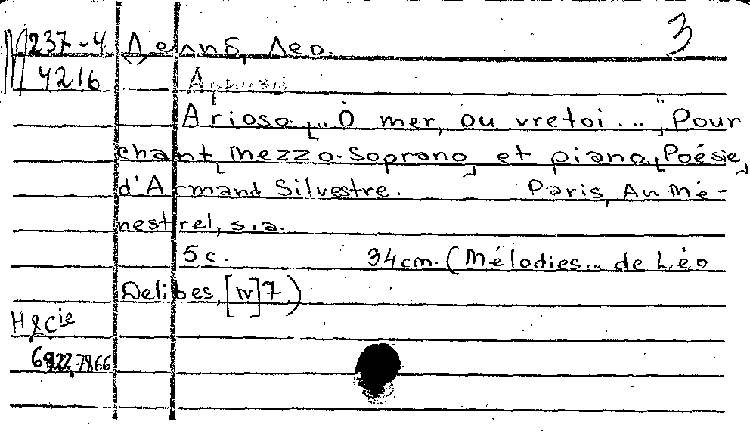 3
M 237-4 Делиб, Лео.
4216
Arioso „O mer, ou vretoi..." Pour
chant [mezzo-Soprano] et piano, [Poésie]
d'Armant Silvestre. Paris, Au Mé-
nestrel, s.a.
5 c. 34cm. (Mélodies... de Léo
Delibes, [IV] 7)
H & Cie